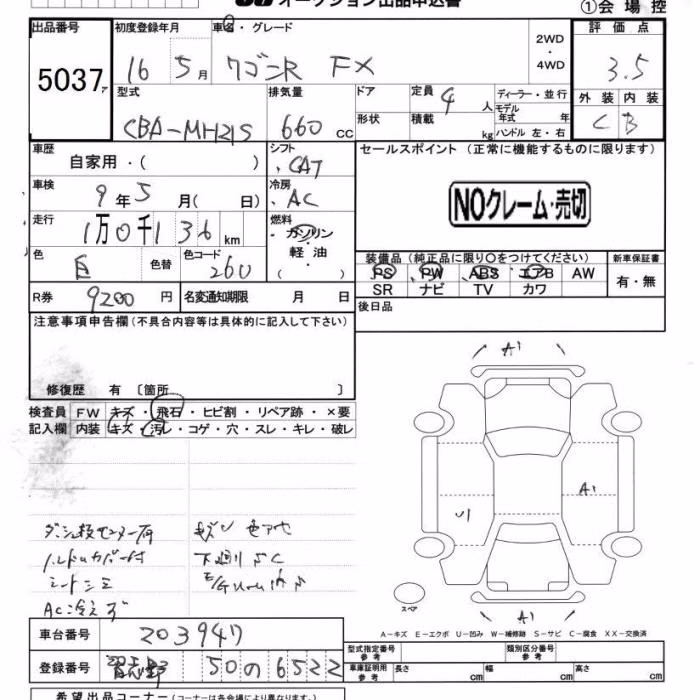 オークション出品申込書 ①会場控
出品番号 初度登録年月 車名・グレード 2WD・4WD 評価点
5037 ァ 16 5月 ワゴンR FX 3.5
型式 排気量 ドア 定員 4人 ディーラー・並行 外装 内装
CBA-MH21S 660 cc 形状 積載 kg モデル年式 年 ハンドル 左・右 C B
車歴 自家用・( ) シフト ・CAT セールスポイント (正常に機能するものに限ります)
車検 9年5月( 日) 冷房 ・AC NOクレーム・売切
走行 1万0千136km 燃料 ・ガソリン・軽油( )
色 白 色替 色コード 260 装備品 (純正品に限り○をつけてください) 新車保証書
PS PW ABS エアB AW 有・無
SR ナビ TV カワ
R券 9200円 名変通知期限 月 日 後日品
注意事項申告欄(不具合内容等は具体的に記入して下さい)
修復歴 有 〔箇所 〕
検査員 FW キズ・飛石・ヒビ割・リペア跡・×要
記入欄 内装 キズ・汚レ・コゲ・穴・スレ・キレ・破レ
A1
U1 A1
AC冷えず
スペア A1
A-キズ E-エクボ U-凹み W-補修跡 S-サビ C-腐食 XX-交換済
車台番号 203947
型式指定番号 参考 類別区分番号 参考
登録番号 習志野 50の6522
車庫証明用 参考 長さ cm 幅 cm 高さ cm
希望出品コーナー(コーナーは各会場により異なります。)